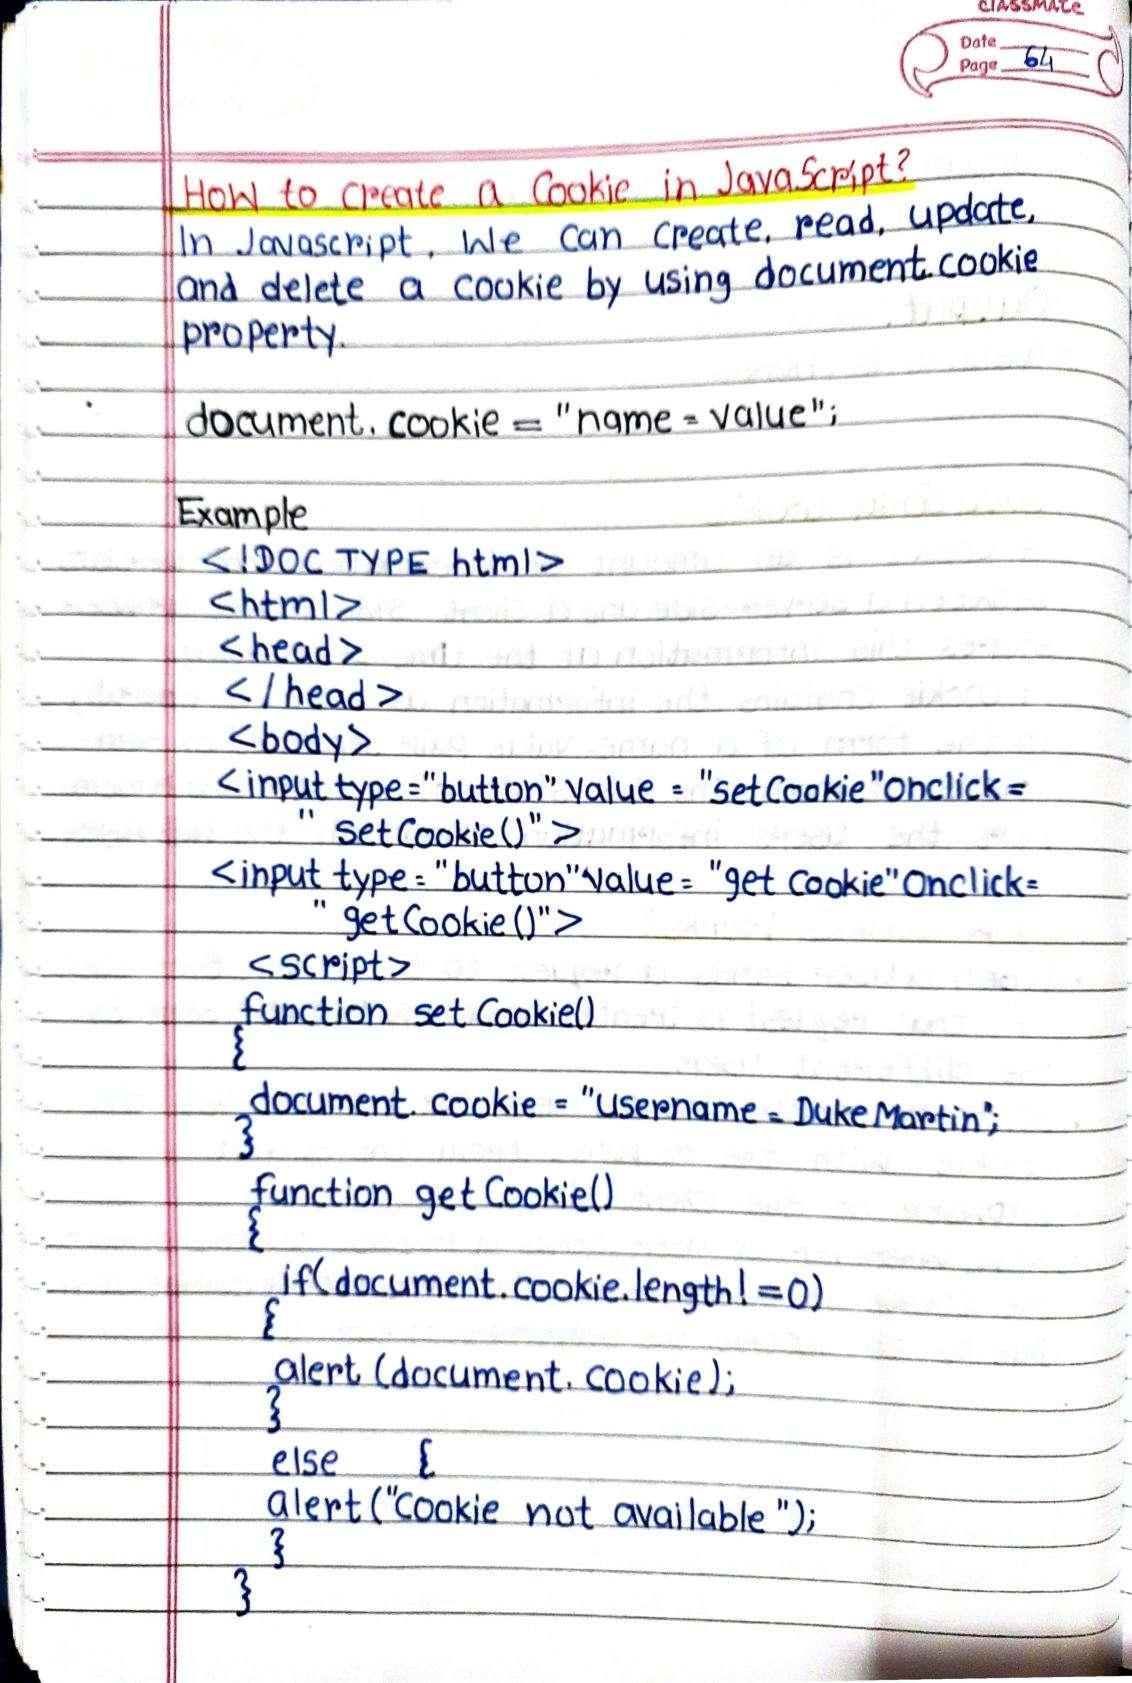 classmate
Date
Page 64
How to create a Cookie in JavaScript?
In Javascript, We can create, read, update,
and delete a cookie by using document.cookie
property.
document. cookie = "name = value";
Example
<!DOC TYPE html>
<html>
<head>
</head>
<body>
<input type="button" value = "setCookie" onclick =
" setCookie()">
<input type= "button" value= "get Cookie" Onclick=
" getCookie()">
<script>
function set Cookie()
{
document. cookie = "username = Duke Martin";
}
function get Cookie()
{
if(document.cookie.length! =0)
{
alert (document. cookie);
}
else {
alert("Cookie not available");
}
}